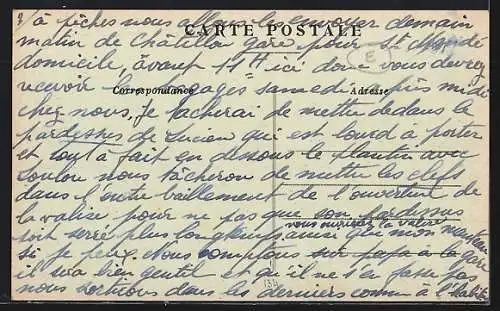 à pêches nous allons les envoyer demain
CARTE POSTALE
matin de Châtillon gare pour St Mandé
E
domicile, avant 11H ici donc vous devrez
recevoir les bagages samedi après midi
Correspondance
Adresse
chez nous, Je tacherai de mettre dedans le
pardessus de Lucien qui est lourd à porter
et tout à fait en dessous le plantin avec
Loulou nous tâcherons de mettre les clefs
dans l'entre baillement de l'ouverture de
la valise pour ne pas que son pardessus
vous ouvrirez la valise
soit serré plus longtemps, ainsi que mon manteau
si je peux. Nous comptons sur papa à la gare
il sera bien gentil et qu'il ne s'en fasse pas
nous sortirons dans les derniers comme à l'habitude
134